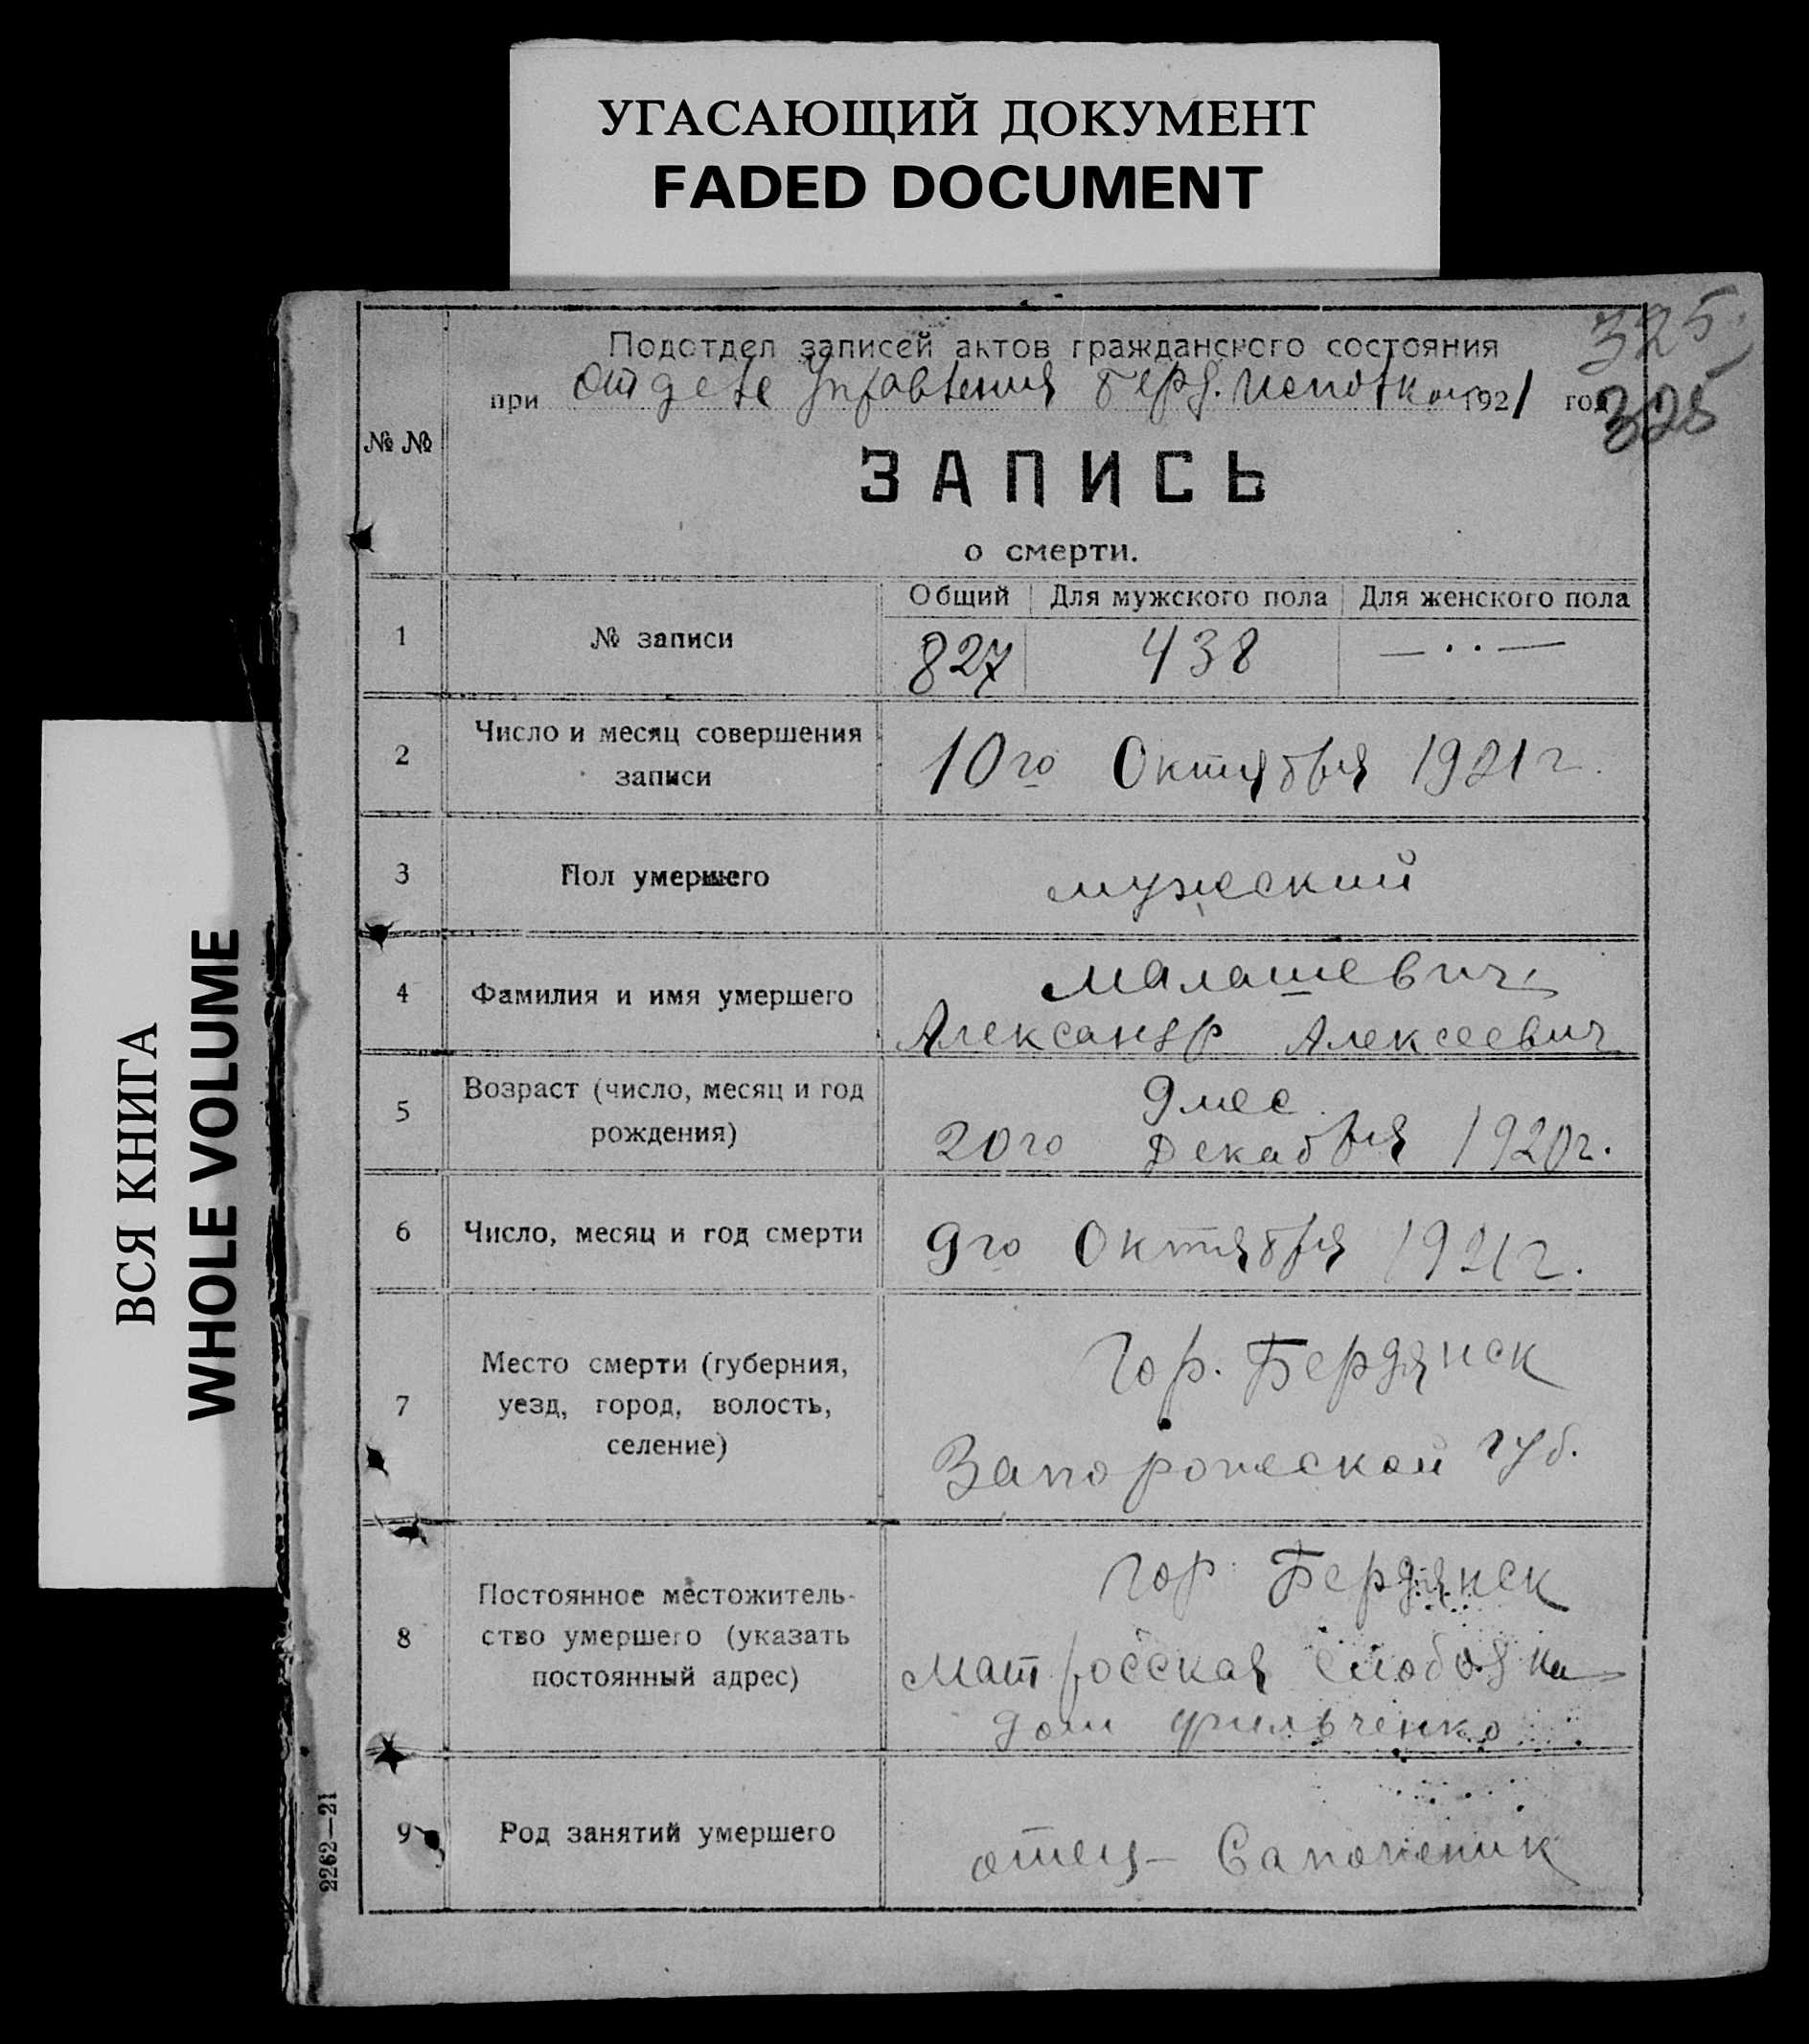 УГАСАЮЩИЙ ДОКУМЕНТ
FADED DOCUMENT
ВСЯ КНИГА
WHOLE VOLUME
325.
325
Подотдел записей актов гражданского состояния
при Отделе Управления Берд. Исполком 1921 год
№ №
ЗАПИСЬ
о смерти.
Общий Для мужского пола Для женского пола
1 № записи 827 438 — · · —
2 Число и месяц совершения
записи
10го Октября 1921 г.
3 Пол умершего мужеский
4 Фамилия и имя умершего
Малашевич
Александр Алексеевич
5 Возраст (число, месяц и год
рождения)
9 мес.
20го Декабря 1920 г.
6 Число, месяц и год смерти 9го Октября 1921 г.
7 Место смерти (губерния,
уезд, город, волость,
селение)
Гор. Бердянск
Запорожской губ.
8 Постоянное местожитель-
ство умершего (указать
постоянный адрес)
гор. Бердянск
Матросская слободка
дом Фильченко
9 Род занятий умершего отец – Сапожник
2262—21